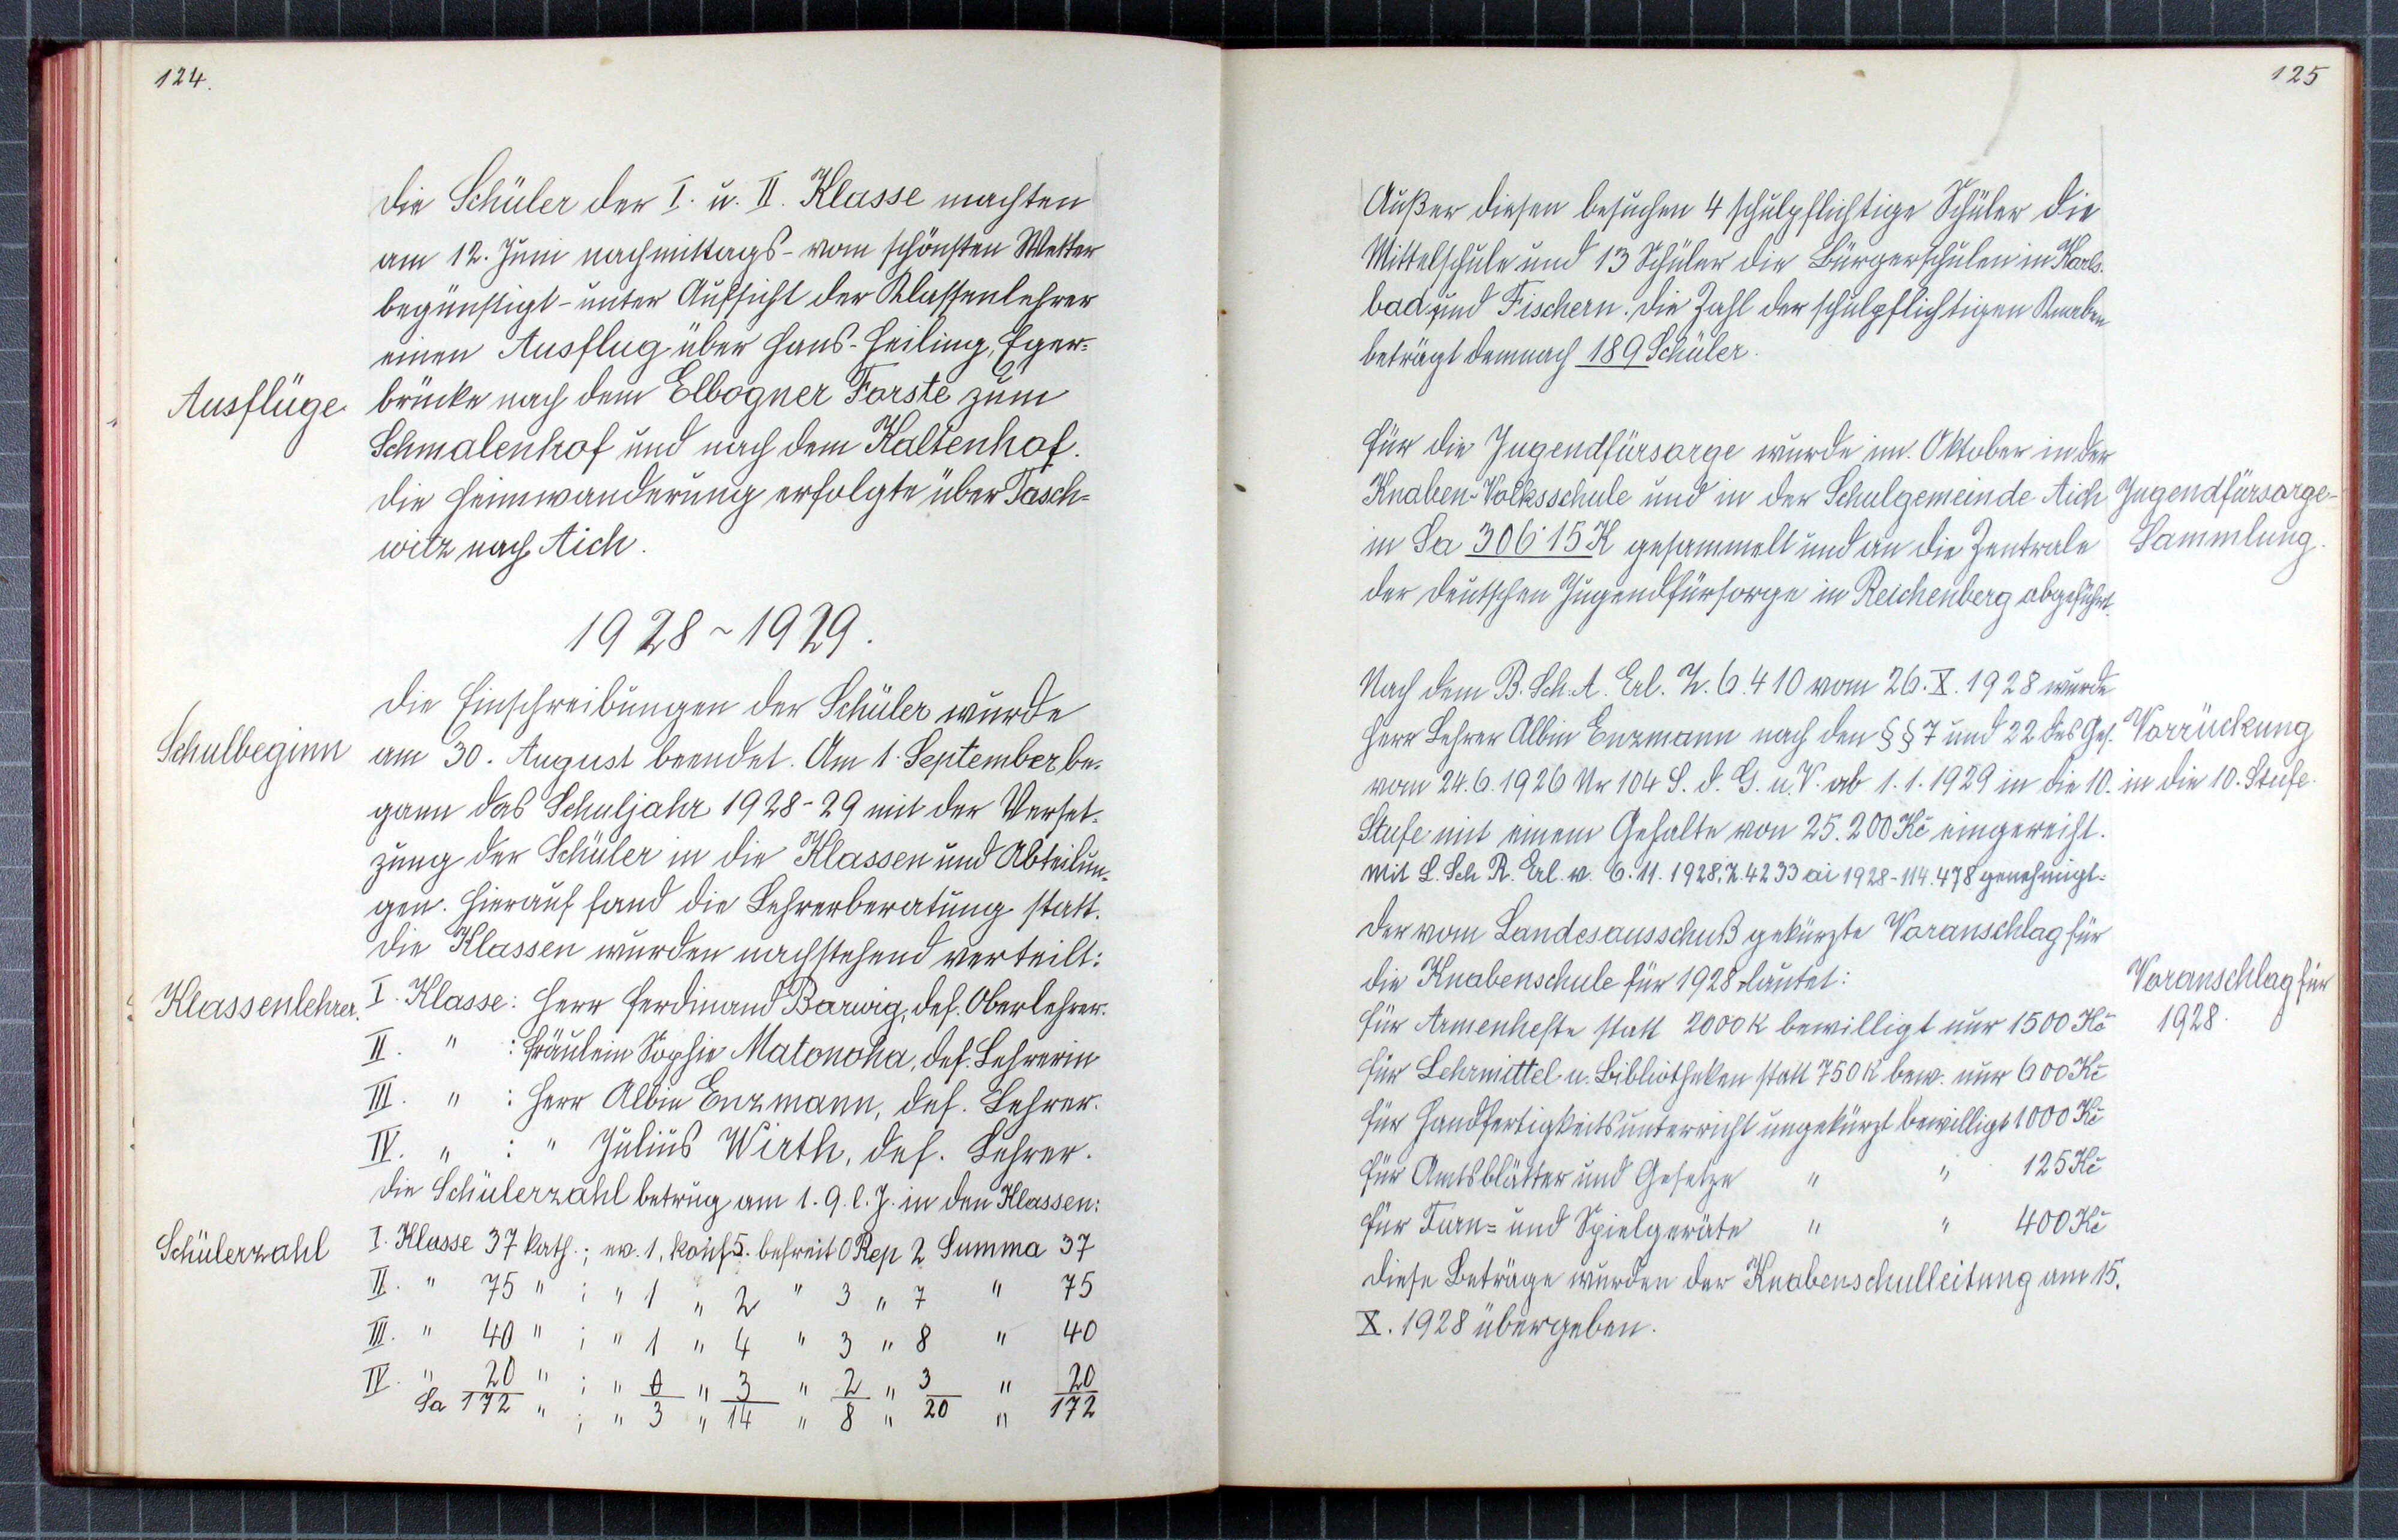 124.
Die Schüler der I. u. II. Klasse machten
am 12. Juni nachmittags - vom schönsten Wetter
begünstigt - unter Aufsicht der Klassenlehrer
einen Ausflug über Hans-Heiling, Eger-
Ausflüge brücke nach dem Elbogner Forste zum
Schmalenhof und nach dem Kaltenhof.
Die Heimwanderung erfolgte über Tasch-
witz nach Aich.
1928~1929.
Die Einschreibungen der Schüler wurde
Schulbeginn am 30. August beendet. Am 1. September be-
gann das Schuljahr 1928-29 mit der Verset-
zung der Schüler in die Klassen und Abteilun-
gen. Hierauf fand die Lehrerberatung statt.
Die Klassen wurden nachstehend verteilt:
Klassenlehrer. I. Klasse: Herr Ferdinand Barwig, def. Oberlehrer.
II. " : Fräulein Sophie Matonoha, def. Lehrerin
III. " : Herr Albin Enzmann, def. Lehrer.
IV. " : " Julius Wirth, def. Lehrer.
Die Schülerzahl betrug am 1. 9. l. J. in den Klassen:
Schülerzahl I. Klasse 37 kath.; ev. 1, konf 5. befreit 0 Rep 2 Summa 37
II. " 75 " ; " 1 " 2 " 3 " 7 " 75
III. " 40 " ; " 1 " 4 " 3 " 8 " 40
IV. " 20 " ; " 0 " 3 " 2 " 3 " 20
Sa 172 " ; " 3 " 14 " 8 " 20 " 172
125
Außer diesen besuchen 4 schulpflichtige Schüler die
Mittelschule und 13 Schüler die Bürgerschulen in Karls-
bad und Fischern. Die Zahl der schulpflichtigen Knaben
beträgt demnach 189 Schüler.
Für die Jugendfürsorge wurde im Oktober in der
Knaben-Volksschule und in der Schulgemeinde Aich Jugendfürsorge-
in Sa 306·15 K gesammelt und an die Zentrale Sammlung.
der deutschen Jugendfürsorge in Reichenberg abgeführt.
Nach dem B. Sch. A. Erl. Z. 6.410 vom 26. X. 1928 wurde
Herr Lehrer Albin Enzmann nach den §§ 7 und 22 des Ges. Vorrückung
vom 24. 6. 1926 Nr 104 S. d. G. u. V. ab 1. 1. 1929 in die 10. in die 10. Stufe.
Stufe mit einem Gehalte von 25.200 Kč eingereiht.
Mit L. Sch R. Erl. v. 6. 11. 1928, Z. 4233 ai 1928-114.478 genehmigt.
Der vom Landesausschuß gekürzte Voranschlag für
die Knabenschule für 1928 lautet: Voranschlag für
für Armenhefte statt 2000 K bewilligt nur 1500 Kč 1928.
für Lehrmittel u. Bibliotheken statt 750 K bew. nur 600 Kč
für Handfertigkeitsunterricht ungekürzt bewilligt 1000 Kč
für Amtsblätter und Gesetze " " 125 Kč
für Turn- und Spielgeräte " " 400 Kč
Diese Beträge wurden der Knabenschulleitung am 15.
X. 1928 übergeben.